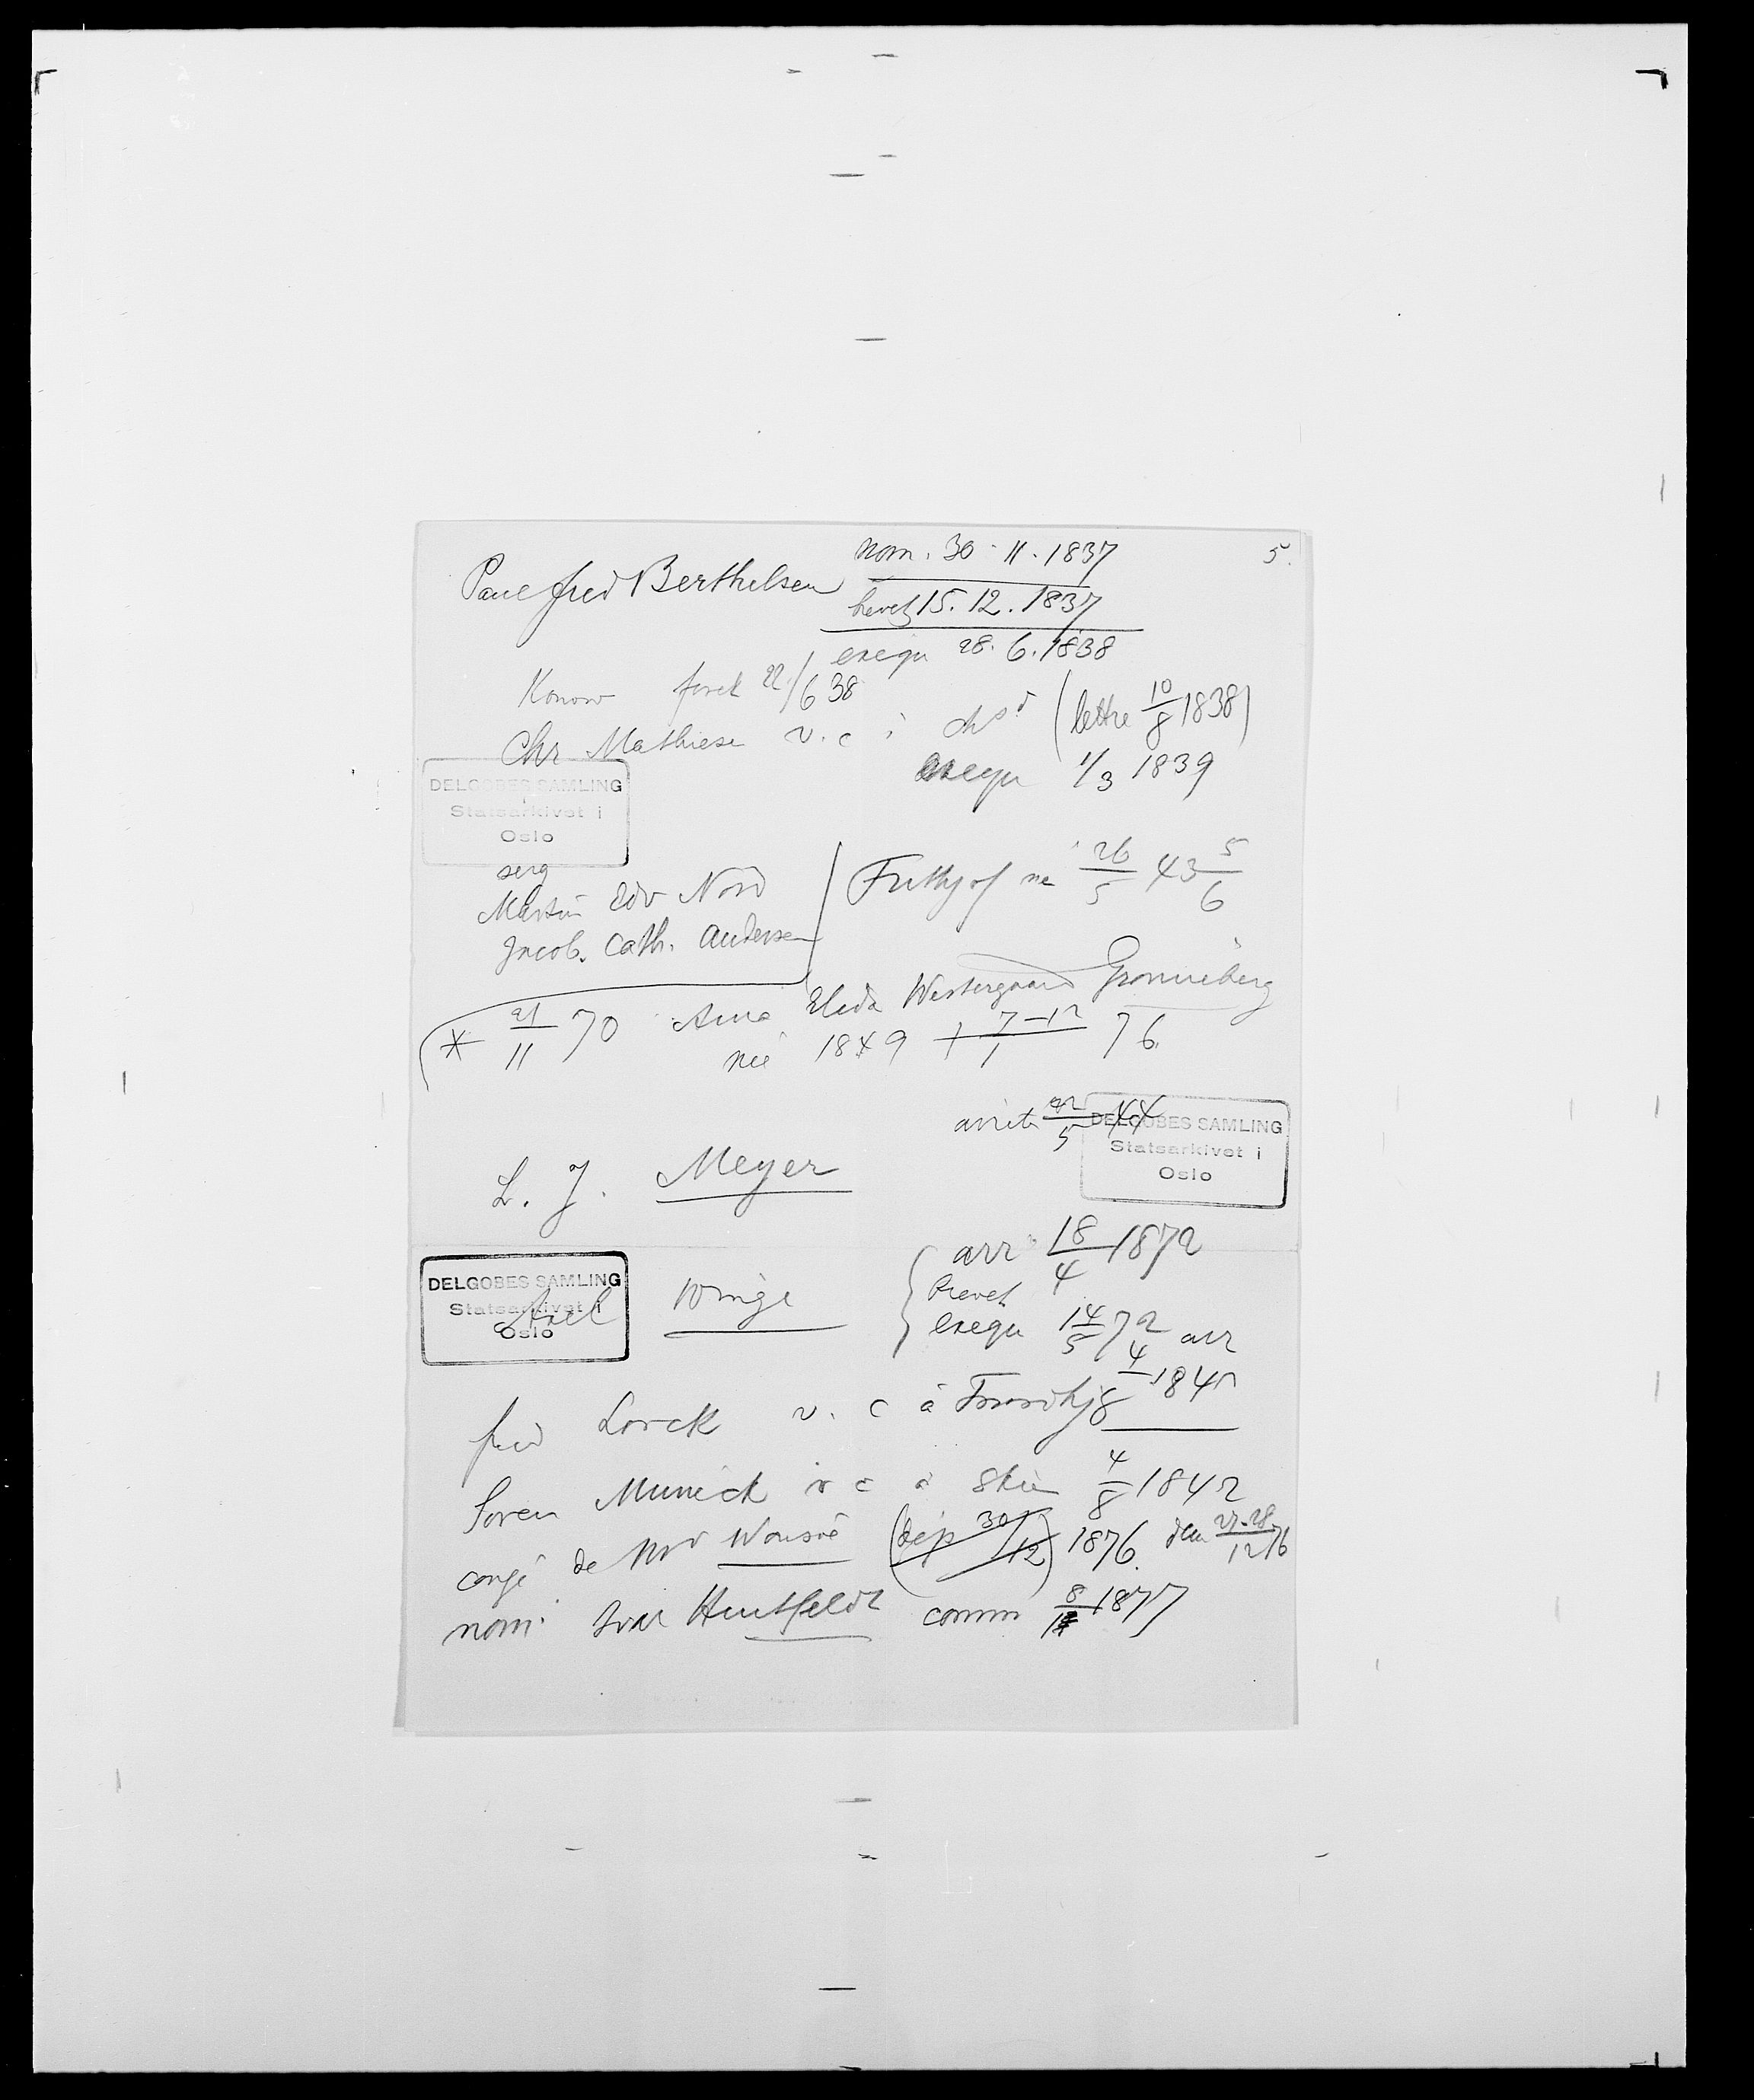 5.
Paul fred Berthelsen nom. 30-11.1837
brevet 15.12.1837
exequ 28.6.1838
Konow 22/6 38
Chr Mathiesen v.c à (lettre 10/8 1838)
exequ 1/3 1839
DELGOBES SAMLING
Statsarkivet i
Oslo
serg
Martin Edv Nord
Jacob. Cath. Andersen
Frithjof né 26/5 43 5/6
* 21/11 70 Anna Elida Westergaard Grønneberg
née 1849 † 7-12/1 76.
arrêté 22/5 44
DELGOBES SAMLING
Statsarkivet i
Oslo
L. J. Meyer
DELGOBES SAMLING
Statsarkivet i
Oslo
Axel Winge
arr 18/4 1872
brevet
exequ 14/5 72
fred Lorck v. c à Trondhj arr 4/8 1842
Soren Munick v c à Skien 4/8 1842
congé de Mr (dép 30/12) 1876. 27-28/12 76
nom. Ivar Huitfeldt comm 8/1 1877